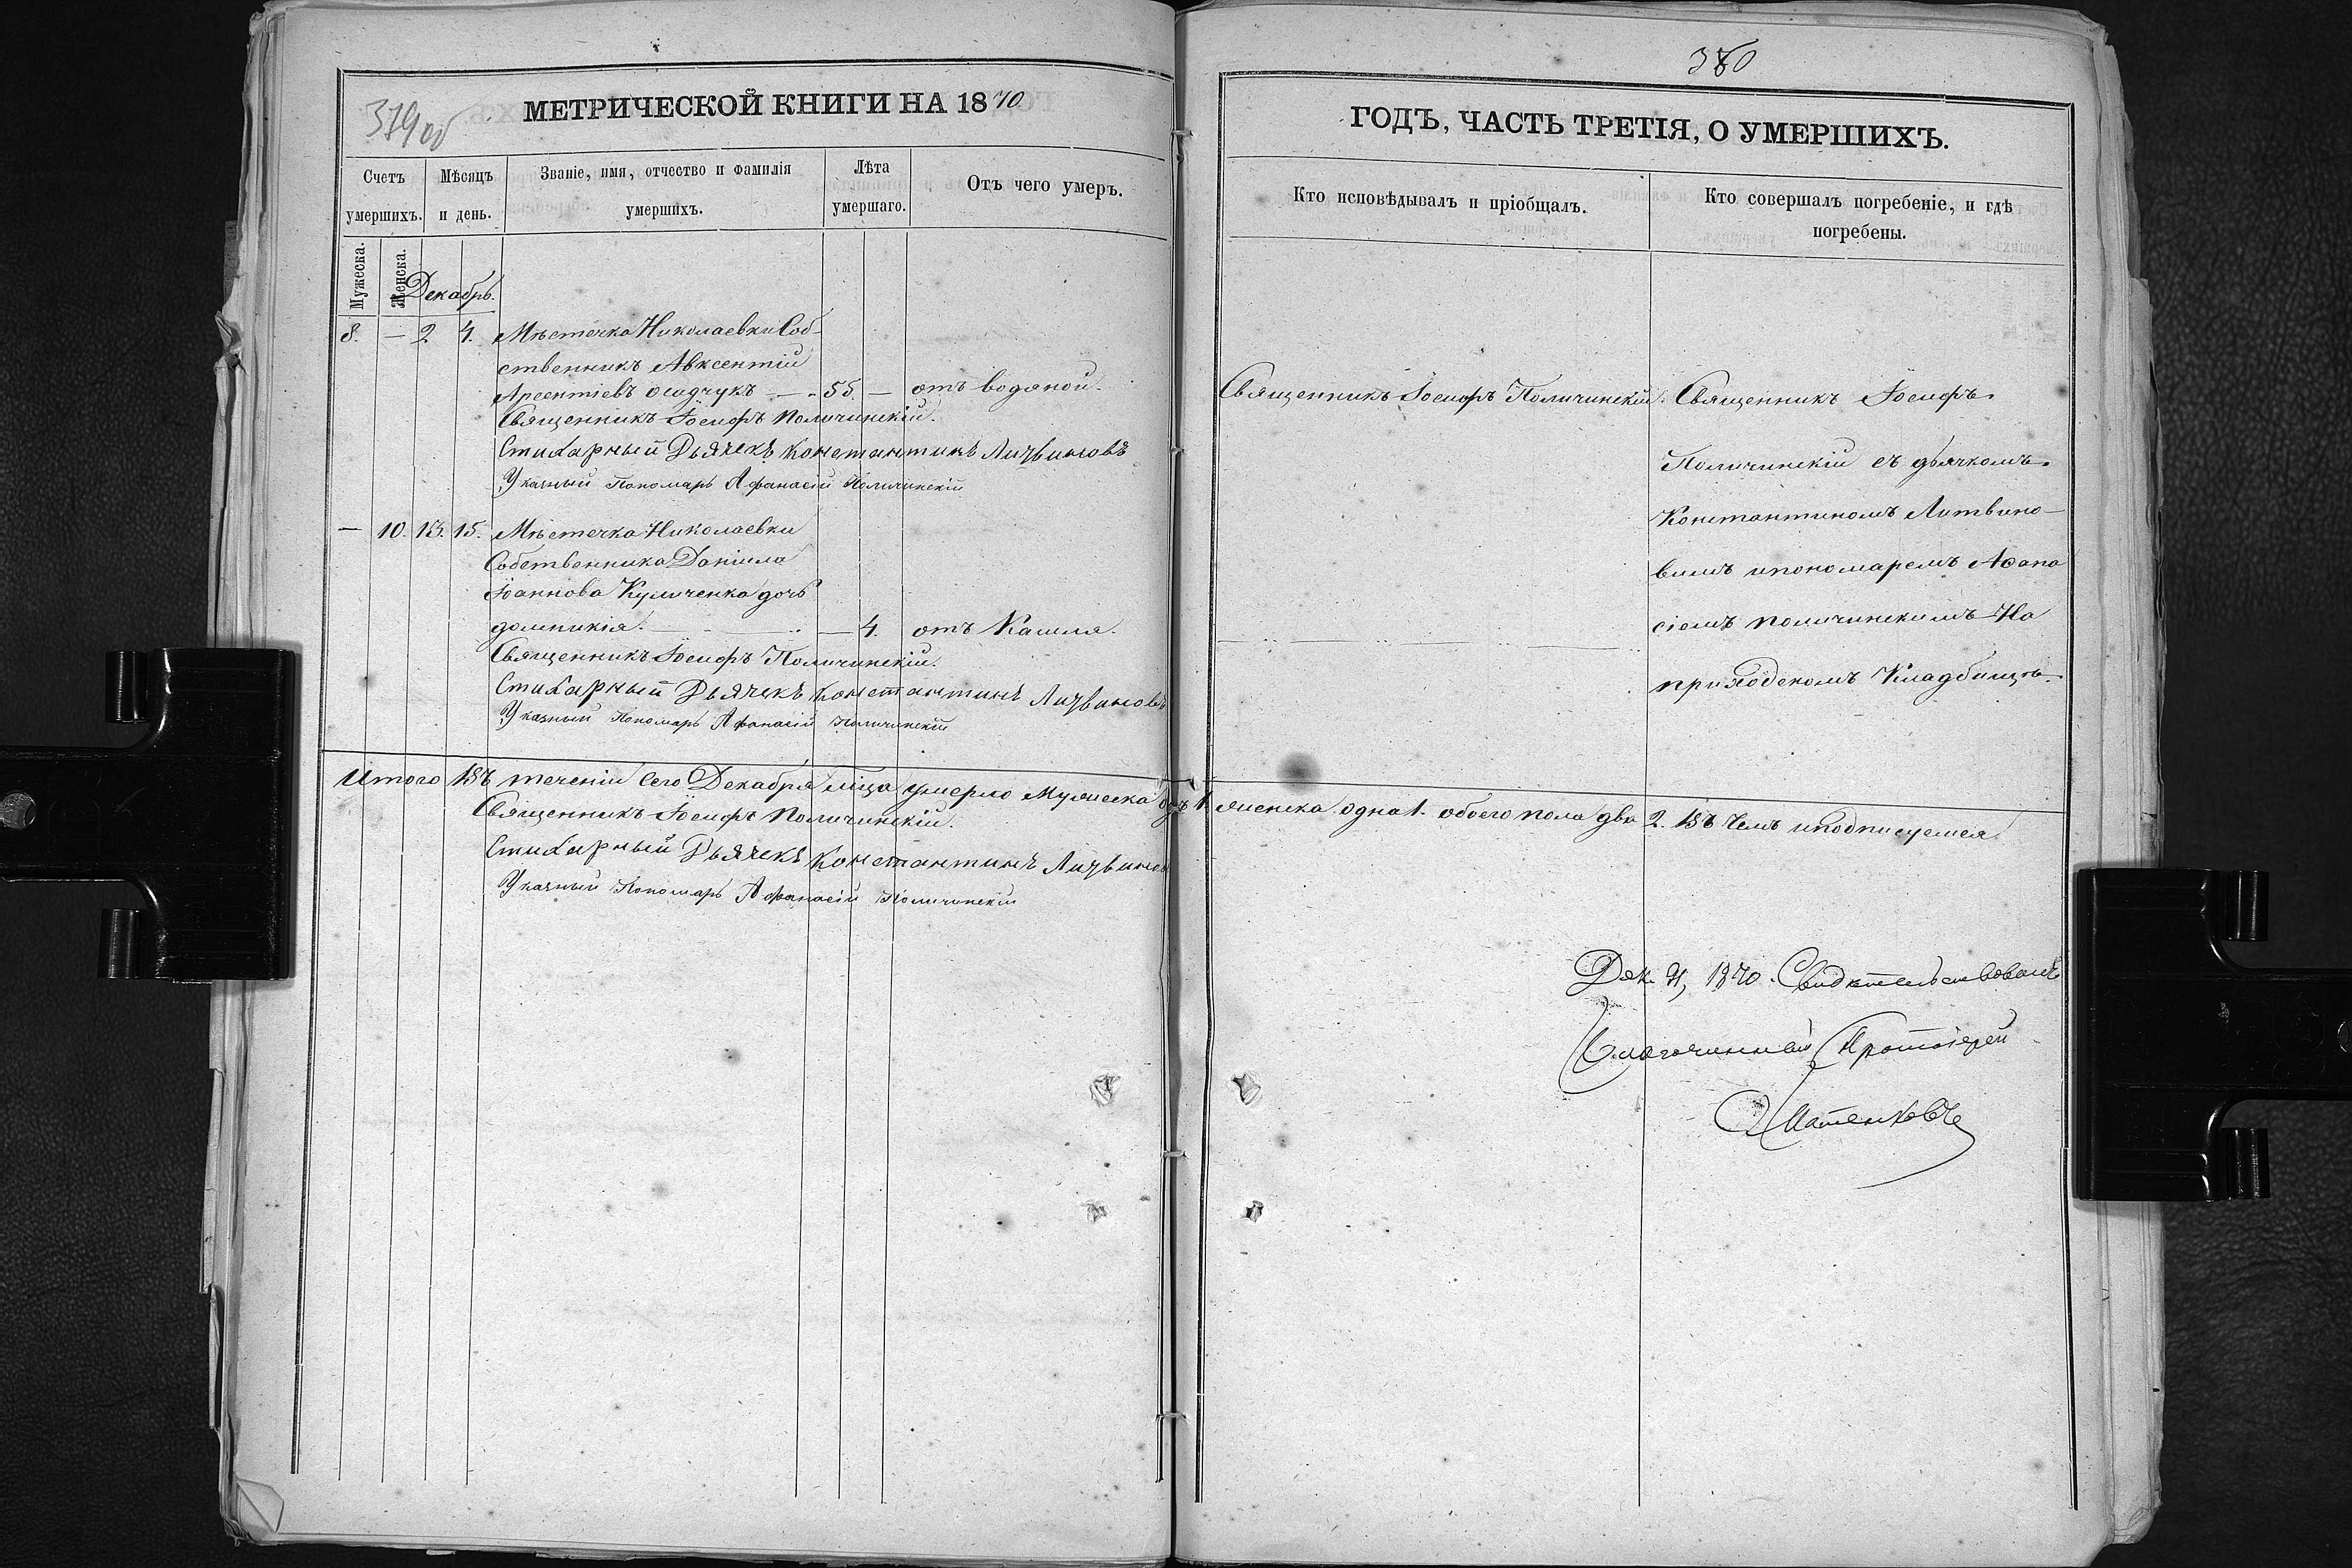 379 об
МЕТРИЧЕСКОЙ КНИГИ НА 1870
Счетъ умершихъ.
Мѣсяцъ и день.
Званіе, имя, отчество и фамилія умершихъ.
Лѣта умершаго.
Отъ чего умеръ.
Мужеска.
Женска.
Декабрь.
8. — 2 4. Мѣстечка Николаевки Соб-
ственникъ Авксентій
Арсентіевъ Осадчукъ — 55. — отъ водяной.
Священникъ Іосифъ Поличинскій.
Стихарный Дьячекъ Константинъ Литвиновъ
Указный Пономарь Афанасій Поличинскій
— 10. 13. 15. Мѣстечка Николаевки
Собственника Даніила
Іоаннова Куличенка дочь
домникія. — — 4. отъ Кашля.
Священникъ Іосифъ Поличинскій.
Стихарный Дьячекъ Константинъ Литвиновъ
Указный Пономарь Афанасій Поличинскій
Итого Въ теченіи Сего Декабря мѣца умерло Мужеска 1. женска одна 1. обоего пола два 2. Въ Чемъ и подписуемся
Священникъ Іосифъ Поличинскій.
Стихарный Дьячекъ Константинъ Литвинов
Указный Пономарь Афанасій Поличинскій
380
ГОДЪ, ЧАСТЬ ТРЕТІЯ, О УМЕРШИХЪ.
Кто исповѣдывалъ и пріобщалъ.
Кто совершалъ погребеніе, и гдѣ
погребены.
Священникъ Іосифъ Поличинскій.
Священникъ Іосифъ
Поличинскій съ дьячкомъ
Константиномъ Литвино-
вимъ и пономаремъ Аѳана
сіемъ Поличинскимъ На
приходскомъ Кладбищѣ.
Дек. 1870. Свидѣтельствовалъ
Благочинный Протоіерей